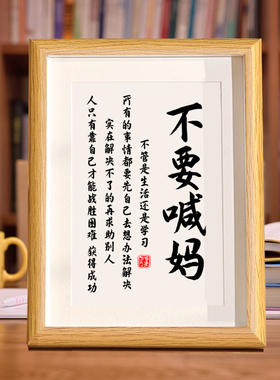 不要喊妈
不管是生活还是学习
所有的事情都要先自己去想办法解决
实在解决不了的再求助别人
人只有靠自己才能战胜困难 获得成功